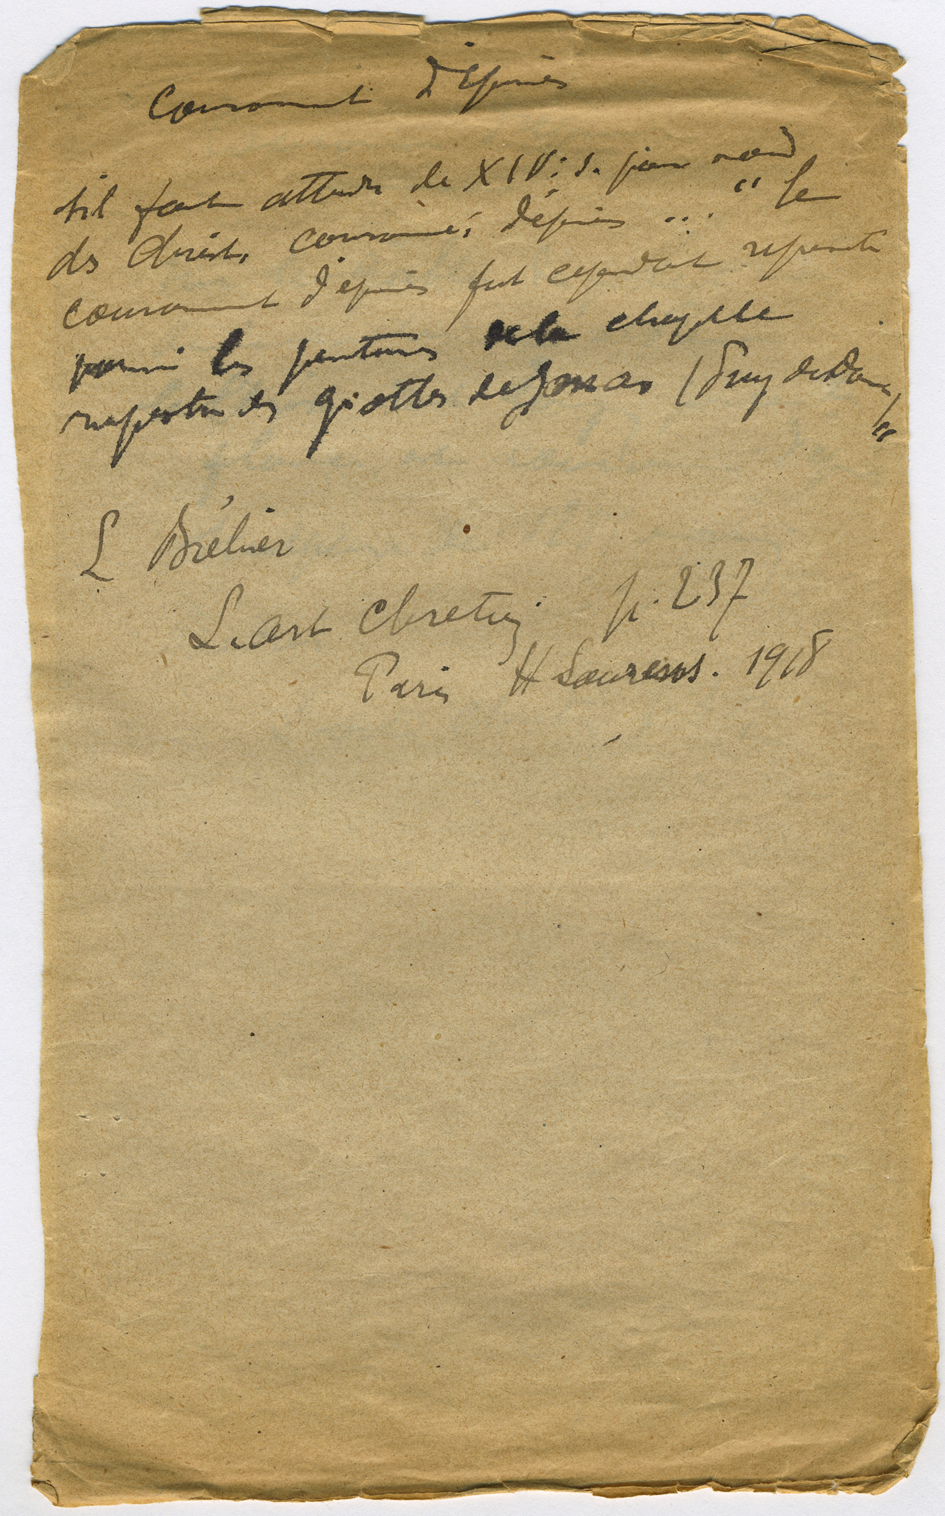 Couronnement d'épines
"il faut attendre le XIVe s. pour voir
des Christs couronnés d'épines ... " le
couronnement d'épines fut cependant représenté
parmi les peintures de la chapelle
rupestre des grottes de Jonas (Puy de Dôme)"
L Bréhier
L'art chretien p. 237
Paris H Laurens. 1918